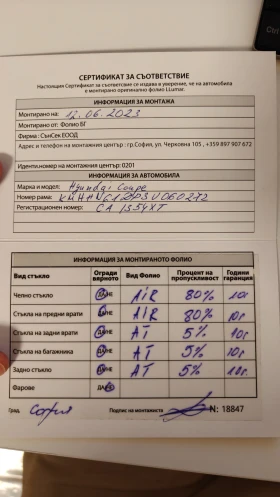 Ctrl
СЕРТИФИКАТ ЗА СЪОТВЕТСТВИЕ
Настоящия Сертификат за съответствие се издава в уверение, че на автомобила
е монтирано оригинално фолио LLumar.
ИНФОРМАЦИЯ ЗА МОНТАЖА
Монтирано на: 12.06.2023
Монтирано от: Фолио БГ
Фирма: СънСек ЕООД
Адрес и телефон на монтажния център: гр.София, ул. Черковна 105, +359 897 907 672
Иденти.номер на монтажния център: 0201
ИНФОРМАЦИЯ ЗА АВТОМОБИЛА
Марка и модел: Hyundai Coupe
Номер рама:
Регистрационен номер: СА 1554ХТ
ИНФОРМАЦИЯ ЗА МОНТИРАНОТО ФОЛИО
Вид стъкло Огради вярното Вид Фолио Процент на пропускливост Години гаранция
Челно стъкло ДА/НЕ AIR 80% 10г
Стъкла на предни врати ДА/НЕ AIR 80% 10г
Стъкла на задни врати ДА/НЕ AT 5% 10г
Стъкла на багажника ДА/НЕ AT 5% 10г
Задно стъкло ДА/НЕ AT 5% 10г
Фарове ДА/НЕ
Град София Подпис на монтажиста N: 18847